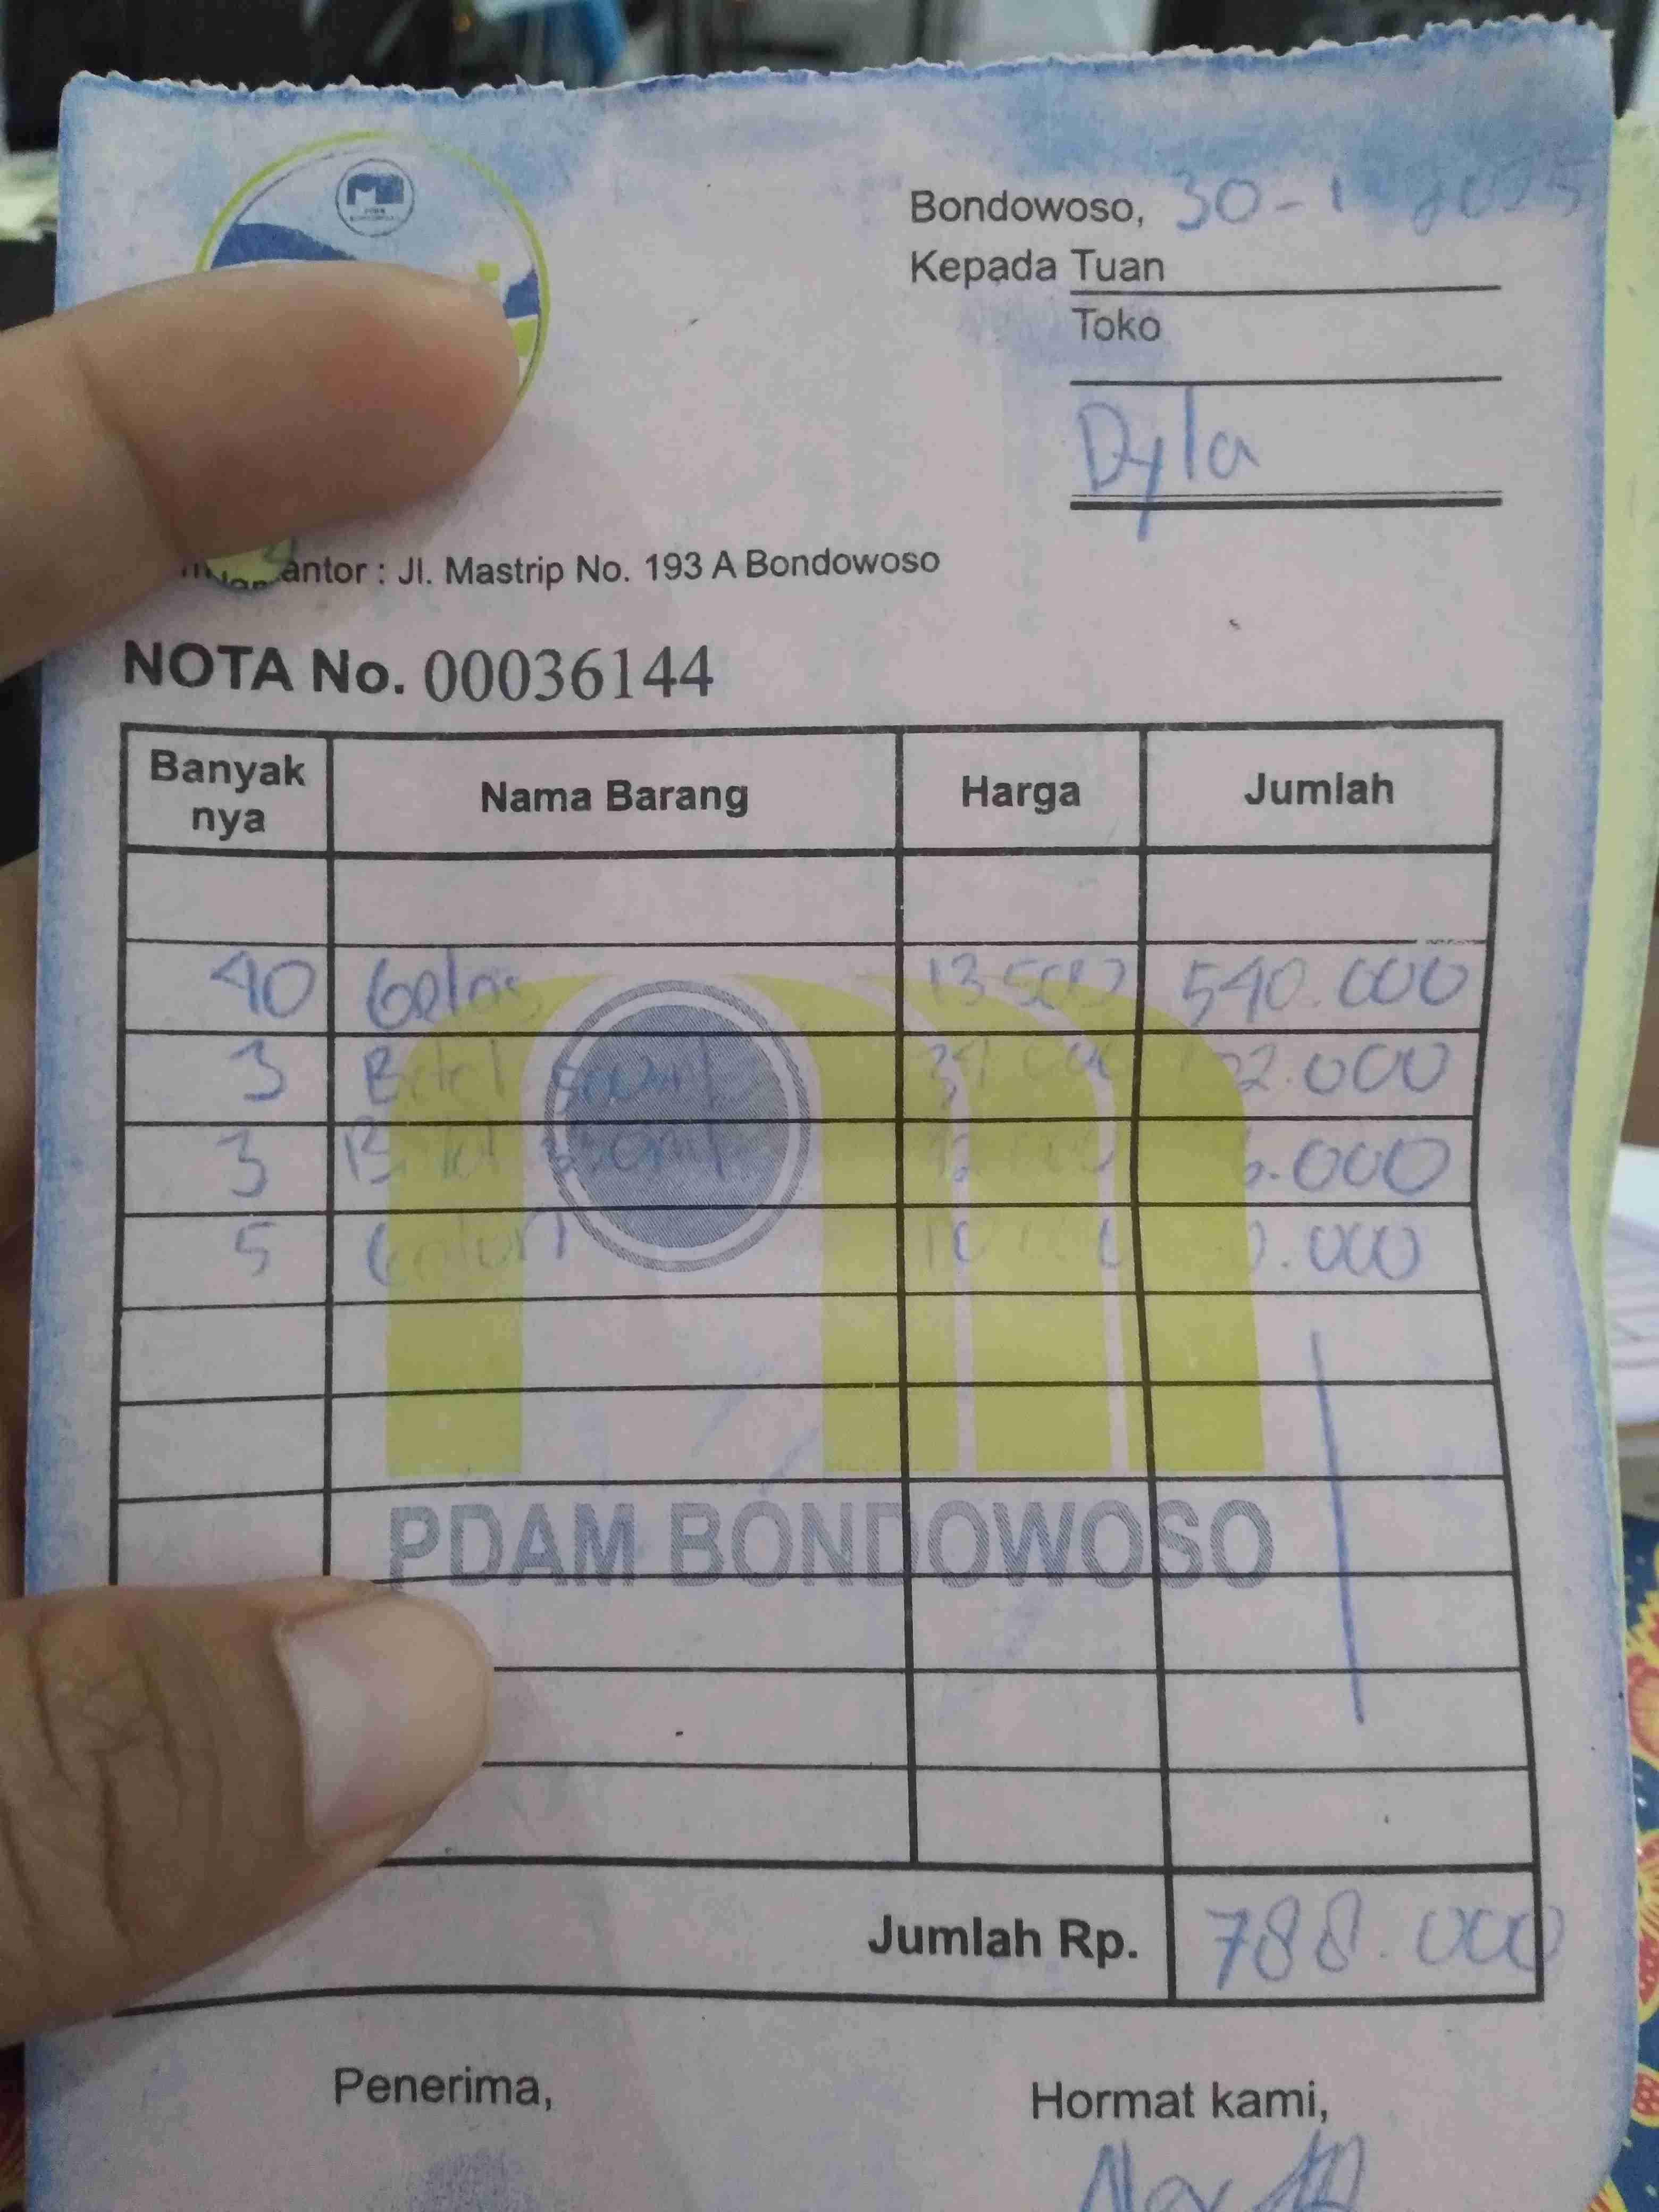 Bondowoso, 30-1 2025
Kepada Tuan
Toko
Dyla
antor : Jl. Mastrip No. 193 A Bondowoso
NOTA No. 00036144
Banyak nya Nama Barang Harga Jumlah
40 Gelas 13.500 540.000
3 Botol 500ml .000
3 Botol .000
5 Galon .000
PDAM BONDOWOSO
Jumlah Rp. 788.000
Penerima, Hormat kami,